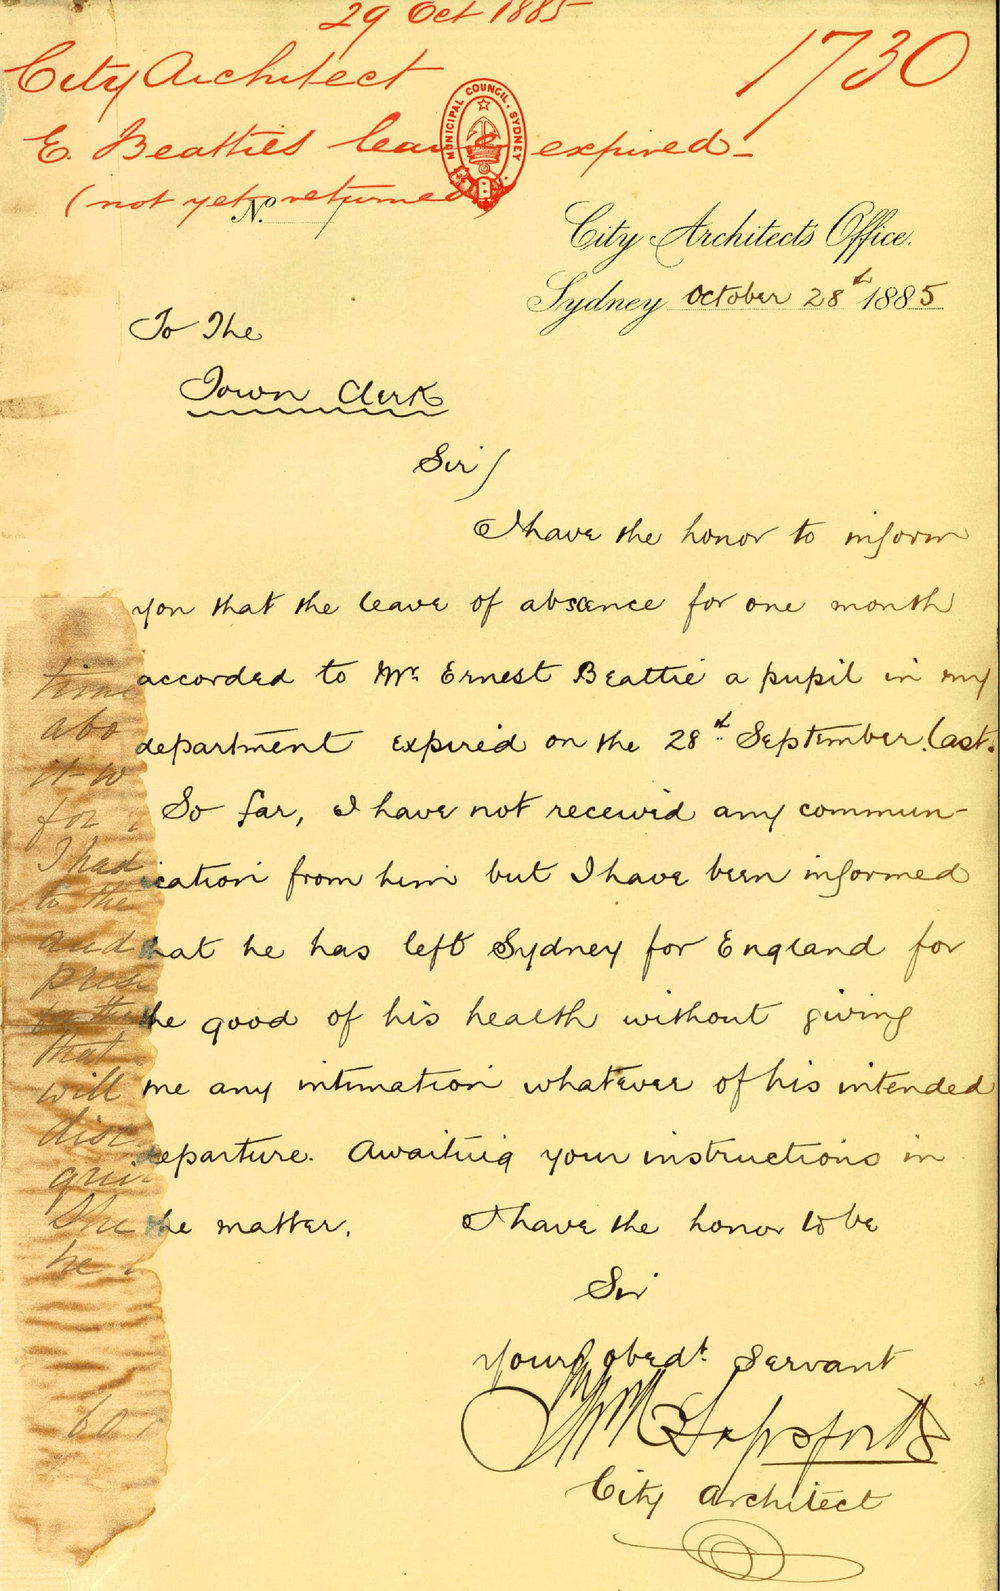 29 Oct 1885
1730
City Architect
E. Beatties leave expired -
(not yet returned)
MUNICIPAL COUNCIL. SYDNEY.
No.
City Architect's Office.
Sydney October 28th 1885
To The
Town Clerk
Sir/
I have the honor to inform
you that the leave of absence for one month
accorded to Mr. Ernest Beattie a pupil in my
department expired on the 28th September last.
So far, I have not received any commun-
ication from him but I have been informed
hat he has left Sydney for England for
he good of his health without giving
me any intimation whatever of his intended
departure. Awaiting your instructions in
he matter. I have the honor to be
Sir
Your obedt. Servant
City Architect
time
abo
it w
for
I had
to the
and
pres
that
will
disc
qui
She
he